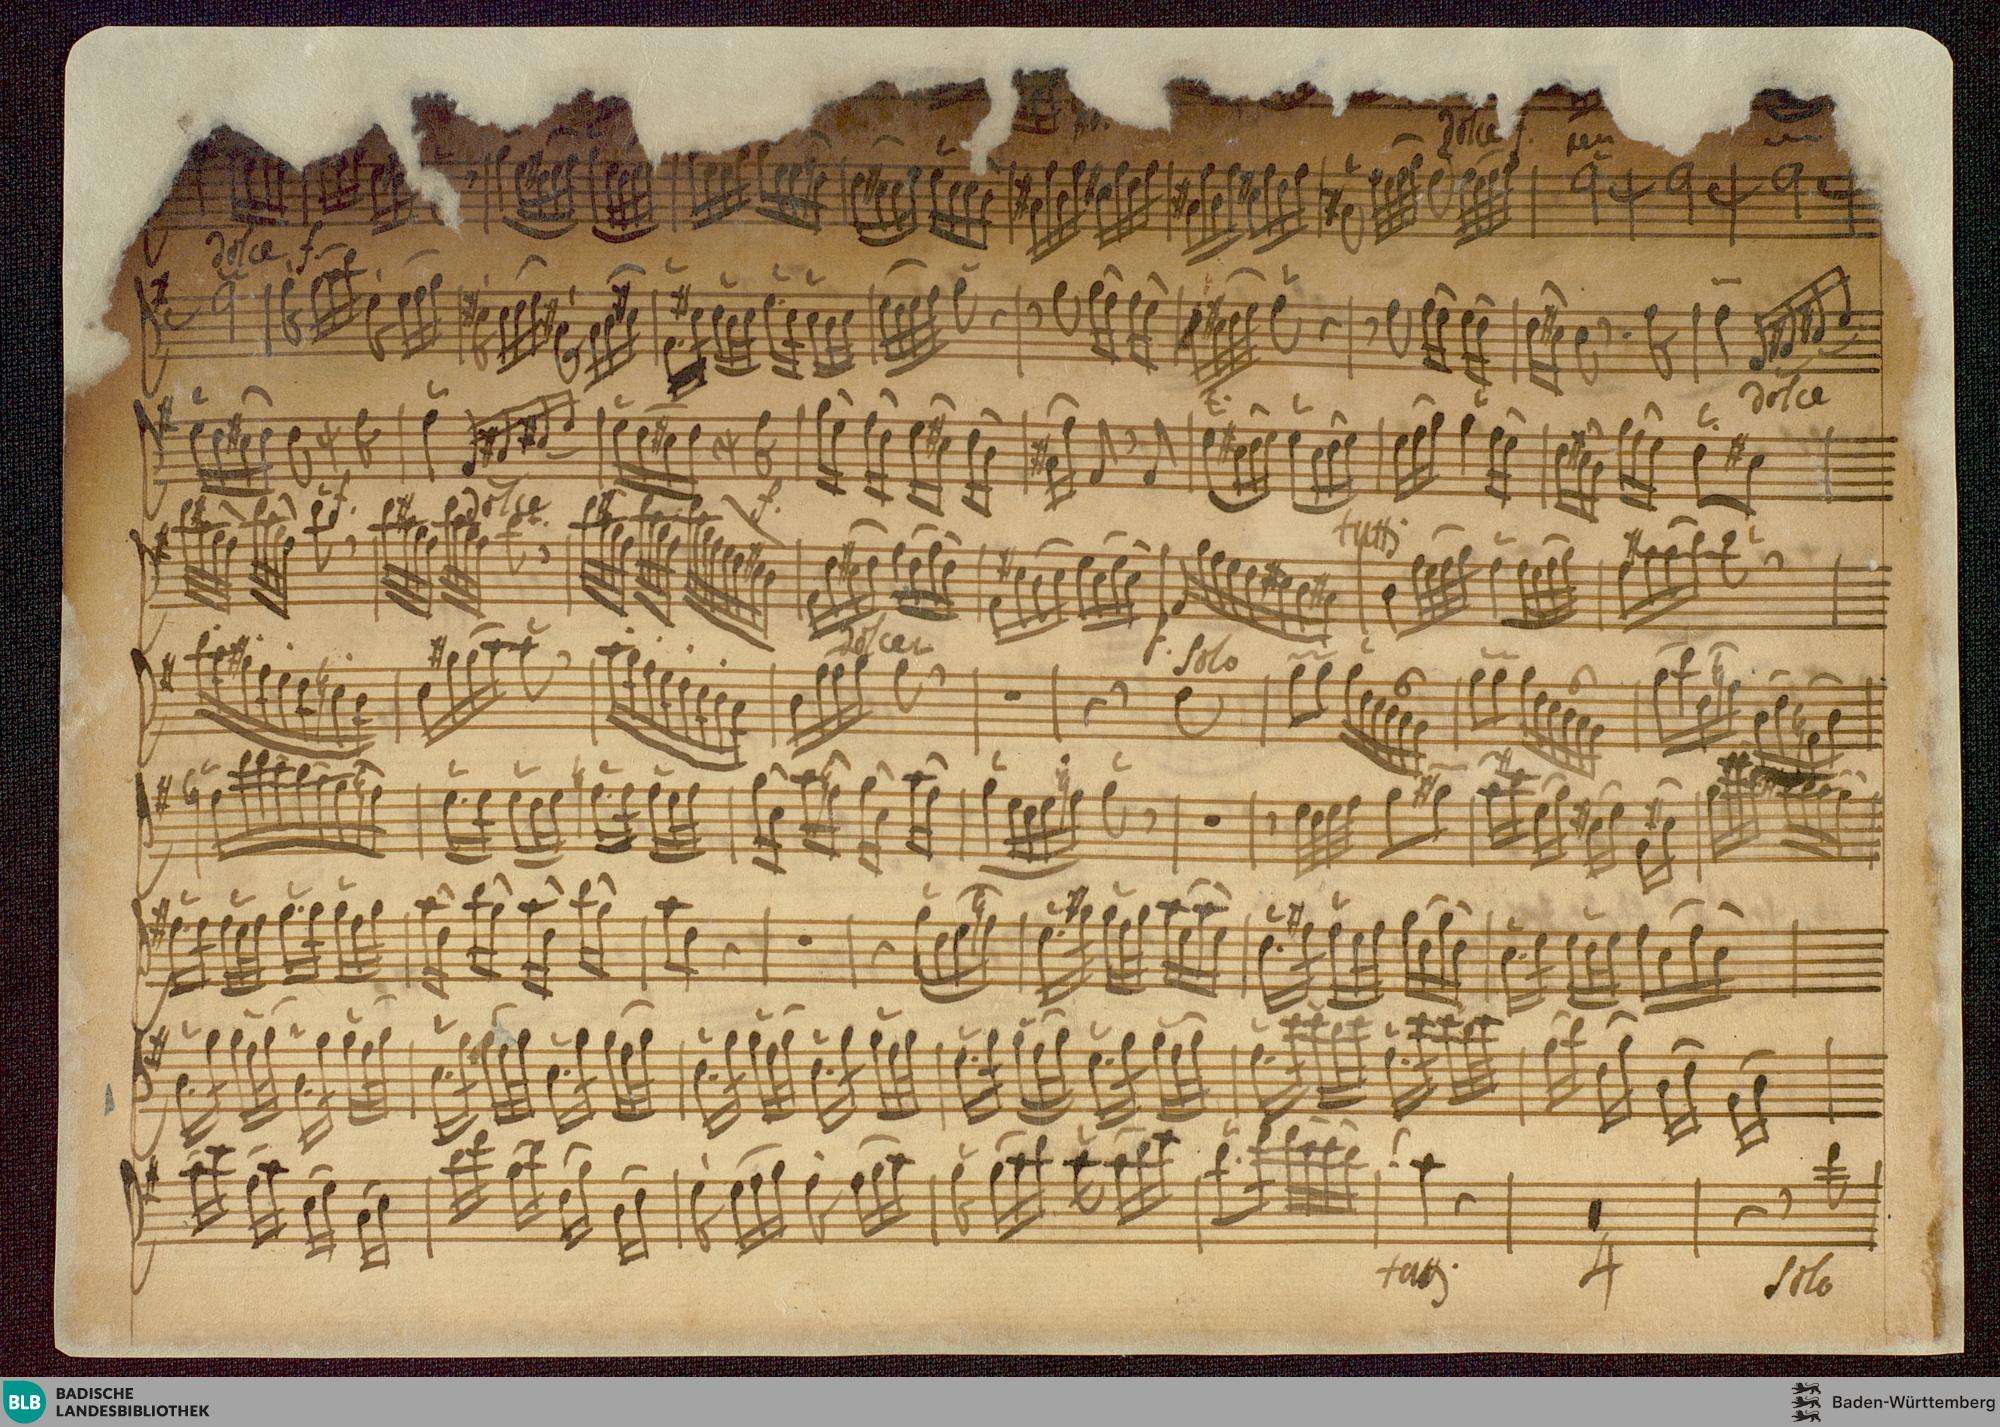 dolce f.
ten
dolce f.
dolce
f.
f. dolce f.
tutti
dolce
f. Solo
tutti 4 Solo
BLB BADISCHE LANDESBIBLIOTHEK
Baden-Württemberg